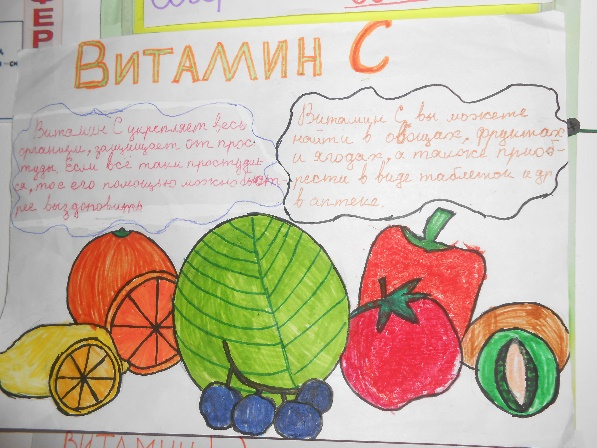 ВИТАМИН С
Витамин С укрепляет весь
организм, защищает от прос-
туды. Если всё таки простудил-
ся, то с его помощью можно быст-
рее выздоровить
Витамин С, вы можете
найти в овощах, фруктах
и ягодах, а также приоб-
рести в виде таблеток и др
в аптеке.
ВИТАМИН